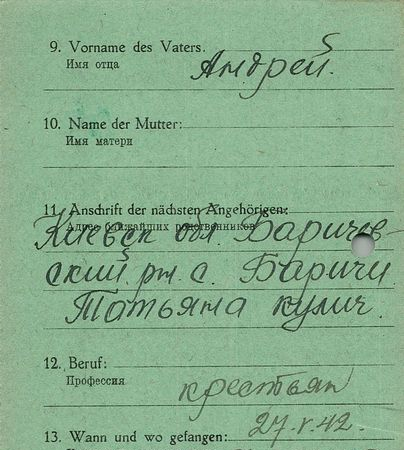 9. Vorname des Vaters.
Имя отца
Андрей.
10. Name der Mutter:
Имя матери
11. Anschrift der nächsten Angehörigen:
Адрес ближайших родственников
Киевск обл. Баричев-
ский рн. с. Баричи
Татьяна кулич.
12. Beruf:
Профессия
крестьян
13. Wann und wo gefangen: 27.V.42.